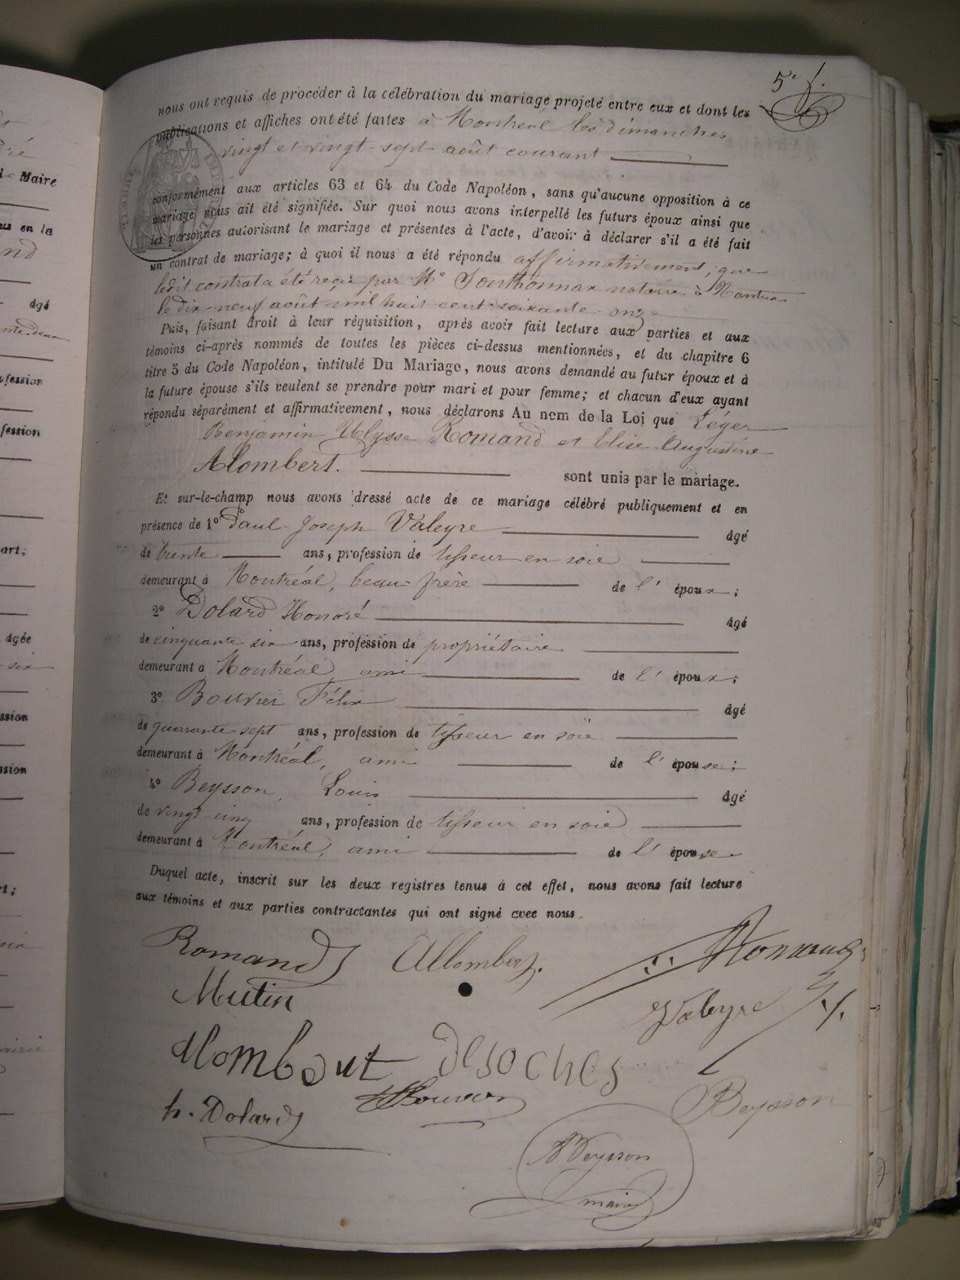 5e f.
nous ont requis de procéder à la célébration du mariage projeté entre eux et dont les
publications et affiches ont été faites à Montréal les dimanches
vingt et vingt-sept août courant
conformément aux articles 63 et 64 du Code Napoléon, sans qu'aucune opposition à ce
mariage nous ait été signifiée. Sur quoi nous avons interpellé les futurs époux ainsi que
les personnes autorisant le mariage et présentes à l'acte, d'avoir à déclarer s'il a été fait
un contrat de mariage; à quoi il nous a été répondu affirmativement, que
ledit contrat a été reçu par Me Jonthonnax notaire à
le dix-neuf août mil huit cent soixante onze
Puis, faisant droit à leur réquisition, après avoir fait lecture aux parties et aux
témoins ci-après nommés de toutes les pièces ci-dessus mentionnées, et du chapitre 6
titre 5 du Code Napoléon, intitulé Du Mariage, nous avons demandé au futur époux et à
la future épouse s'ils veulent se prendre pour mari et pour femme; et chacun d'eux ayant
répondu séparément et affirmativement, nous déclarons Au nom de la Loi que Léger
Benjamin Ulysse Romand et Elise Augustine
Alombert. sont unis par le mariage.
Et sur-le-champ nous avons dressé acte de ce mariage célébré publiquement et en
présence de 1° Paul Joseph Valeyre âgé
de trente ans, profession de tisseur en soie
demeurant à Montréal, beau-frère de l'époux;
2° Dolard Honoré âgé
de cinquante six ans, profession de propriétaire
demeurant à Montréal ami de l'époux;
3° Bouvier Félix âgé
de quarante sept ans, profession de tisseur en soie
demeurant à Montréal, ami de l'épouse;
4° Beysson, Louis âgé
de vingt cinq ans, profession de tisseur en soie
demeurant à Montréal, ami de l'épouse
Duquel acte, inscrit sur les deux registres tenus à cet effet, nous avons fait lecture
aux témoins et aux parties contractantes qui ont signé avec nous.
Romand Allombert. Romand
Mutin Valeyre
Alombert desoches
h. Dolard Bouvier Beysson
Beysson
maire